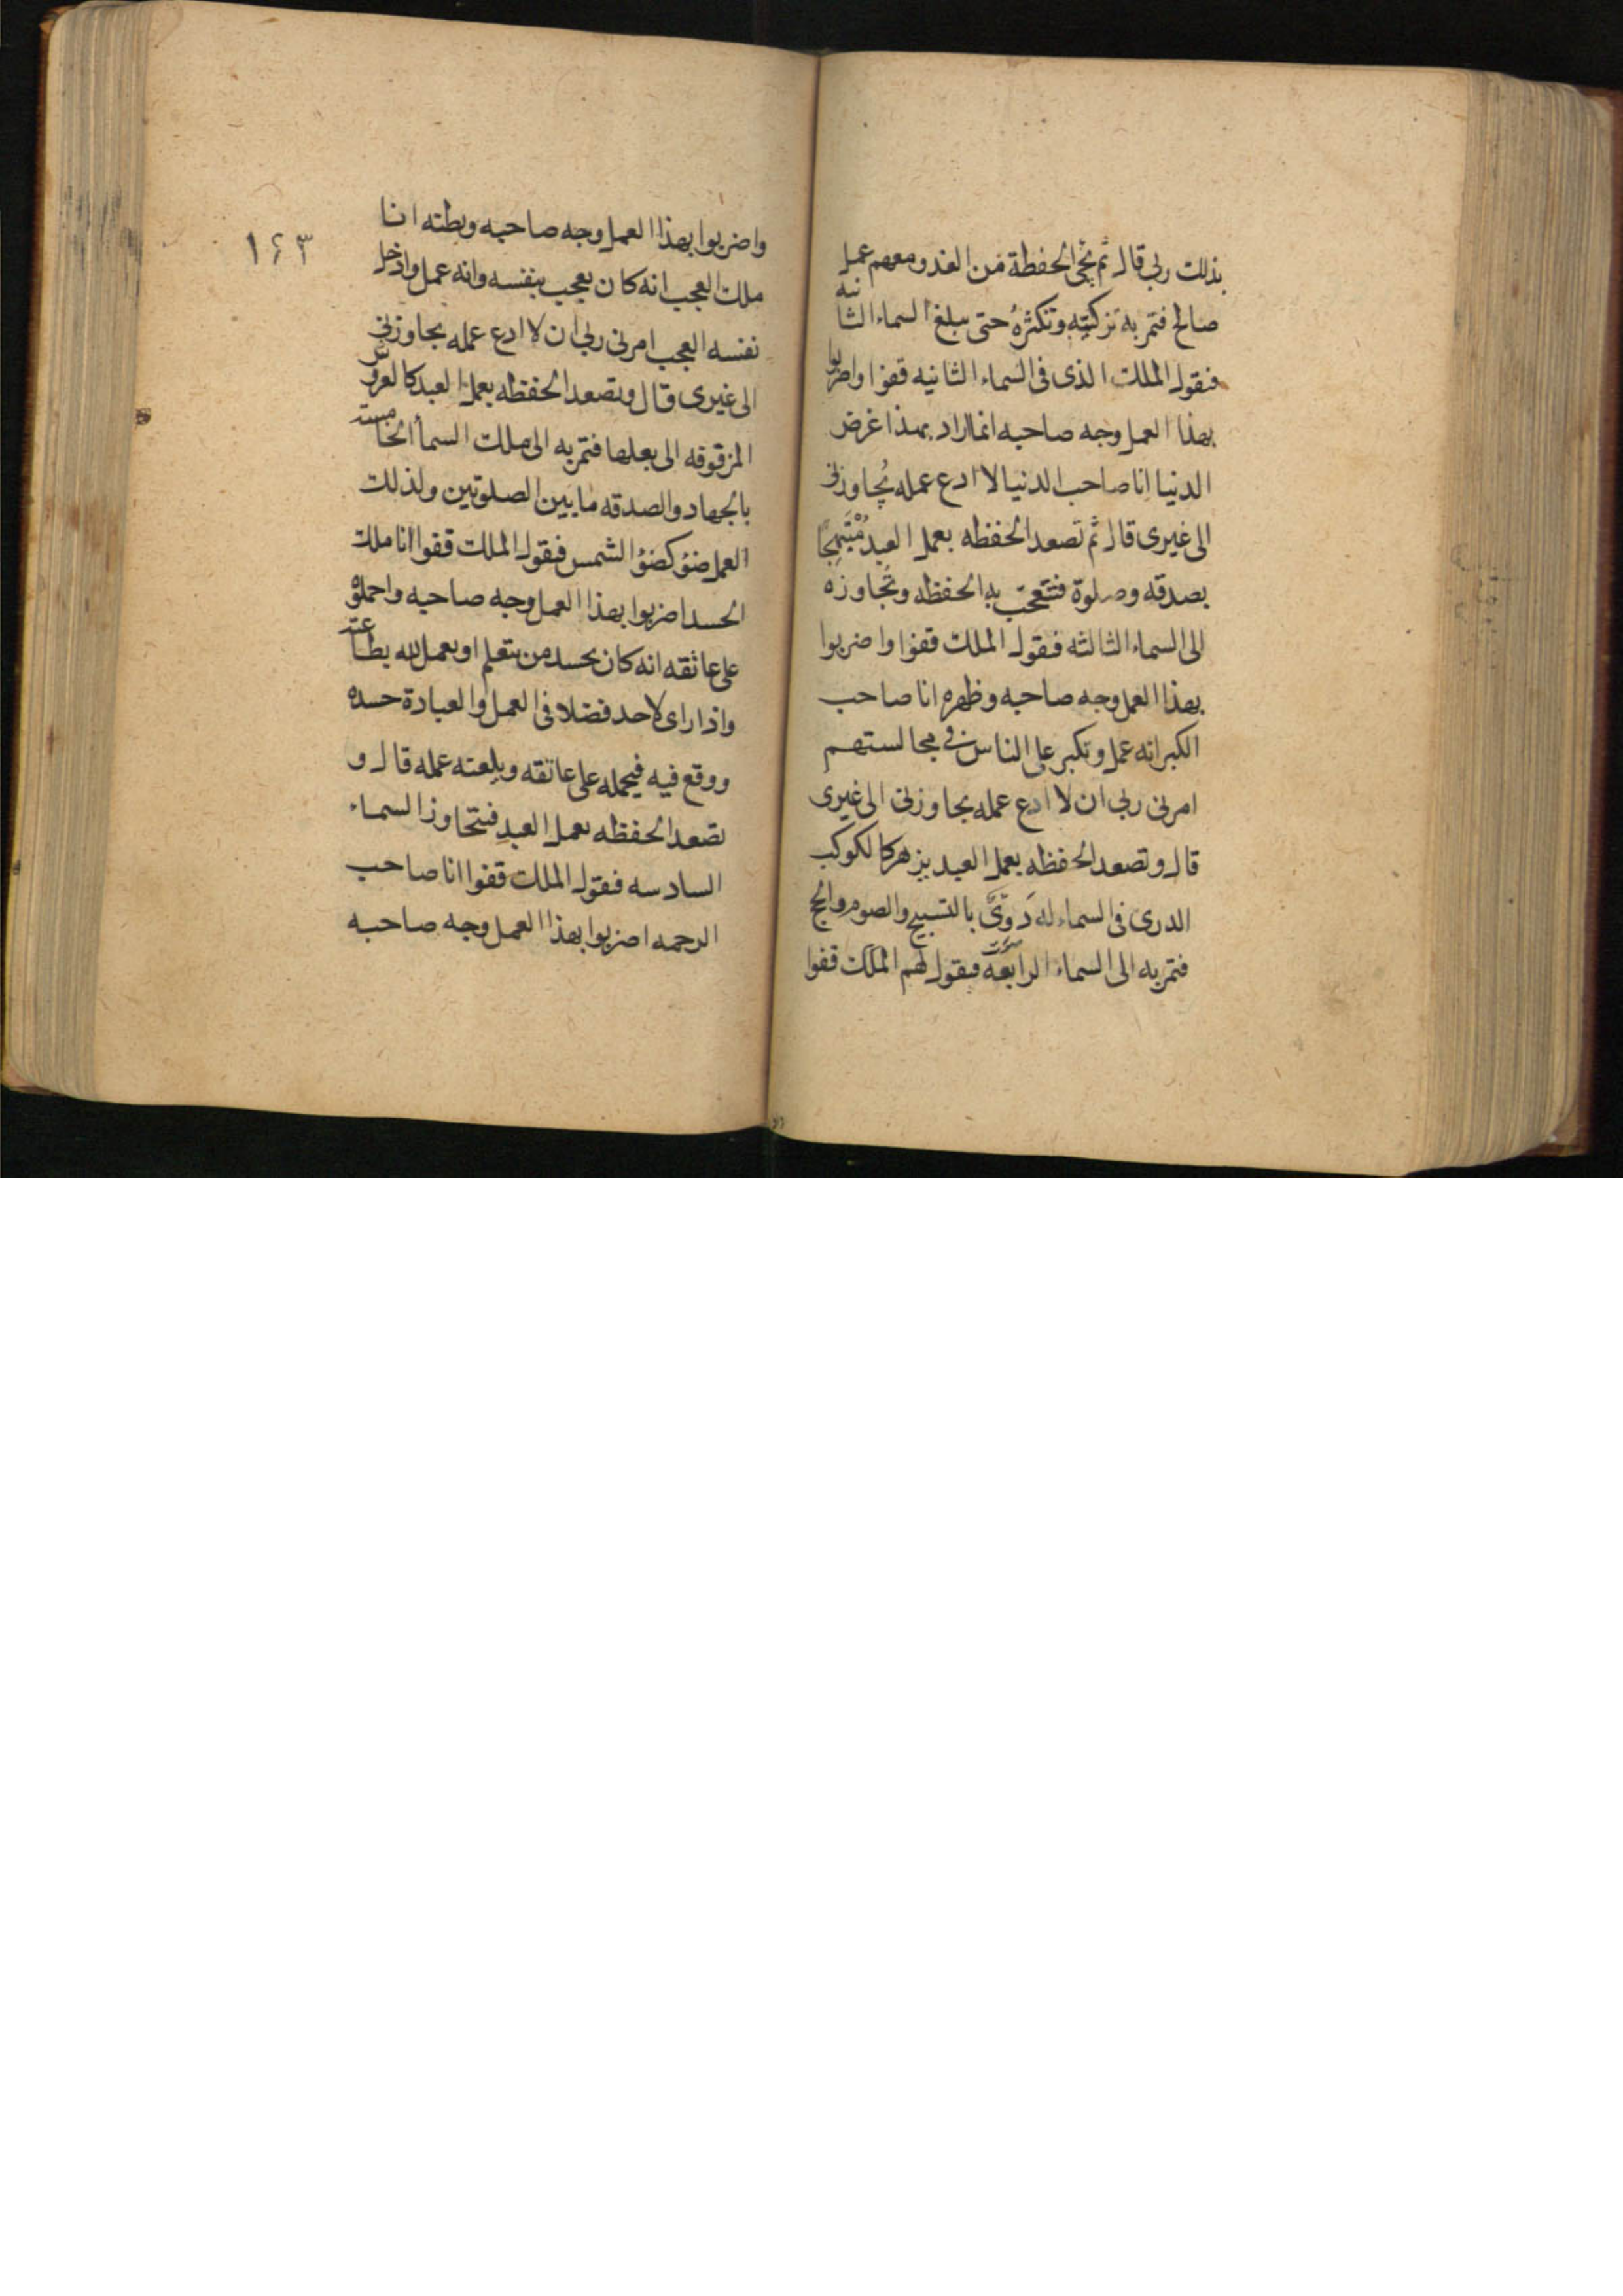 بذلك ربي قال ثم تجئ الحفظة من الغد ومعهم عمل
صالح فتمر به تزكيه وتكثره حتى يبلغ السماء الثانيه
فيقول الملك الذى فى السماء الثانيه قفوا واضربوا
بهذا العمل وجه صاحبه انما اراد بهذا غرض
الدنيا انا صاحب الدنيا لا ادع عمله يُجاوزنى
الى غيرى قال ثم تصعد الحفظه بعمل العبد مُبْتَهِجًا
بصدقه وصلوة فتعجب به الحفظه وتجاوزه
الى السماء الثالثه فيقول الملك قفوا واضربوا
بهذا العمل وجه صاحبه وظهره انا صاحب
الكبر انه عمل وتكبر على الناس فى مجالستهم
امرنى ربي ان لا ادع عمله يجاوزنى الى غيرى
قال وتصعد الحفظه بعمل العبد يزهر كالكوكب
الدرى فى السماء له دَوِىٌّ بالتسبيح والصوم والحج
فتمر به الى السماء الرابعة فيقول لهم الملك قفوا
١٤٣
واضربوا بهذا العمل وجه صاحبه وبطنه انا
ملك العجب انه كان يعجب بنفسه وانه عمل وادخل
نفسه العجب امرنى ربي ان لا ادع عمله يجاوزنى
الى غيرى قال وتصعد الحفظه بعمل العبد كالعروس
المزقوفه الى بعلها فتمر به الى ملك السمأ الخامسة
بالجهاد والصدقه ما بين الصلوتين ولذلك
العمل ضوٴ كضوٴ الشمس فيقول الملك قفوا انا ملك
الحسد اضربوا بهذا العمل وجه صاحبه واحملوه
على عاتقه انه كان يحسد من يتعلم او يعمل لله بطاعته
واذا راى لاحد فضلا فى العمل والعبادة حسده
ووقع فيه فيحمله على عاتقه ويلعنه عمله قال و
تصعد الحفظه بعمل العبد فيتجاوز السماء
السادسه فيقول الملك قفوا انا صاحب
الرحمه اضربوا بهذا العمل وجه صاحبه